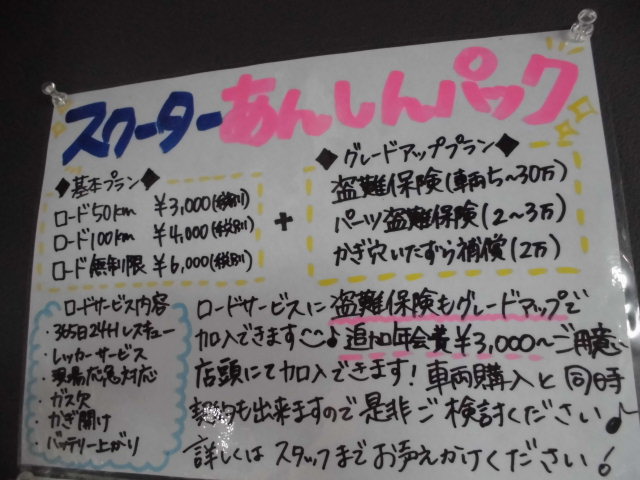 スクーターあんしんパック
◆基本プラン◆
ロード50km ¥3,000(税別)
ロード100km ¥4,000(税別)
ロード無制限 ¥6,000(税別)
+
◆グレードアッププラン◆
盗難保険(車両5〜30万)
パーツ盗難保険(2〜3万)
かぎ穴いたずら補償(2万)
ロードサービス内容
・365日24Hレスキュー
・レッカーサービス
・現場応急対応
・ガス欠
・かぎ開け
・バッテリー上がり
ロードサービスに盗難保険もグレードアップで
加入できます♪追加年会費¥3,000〜ご用意
店頭にて加入できます!車両購入と同時
契約も出来ますので是非ご検討ください♪
詳しくはスタッフまでお声かけください!